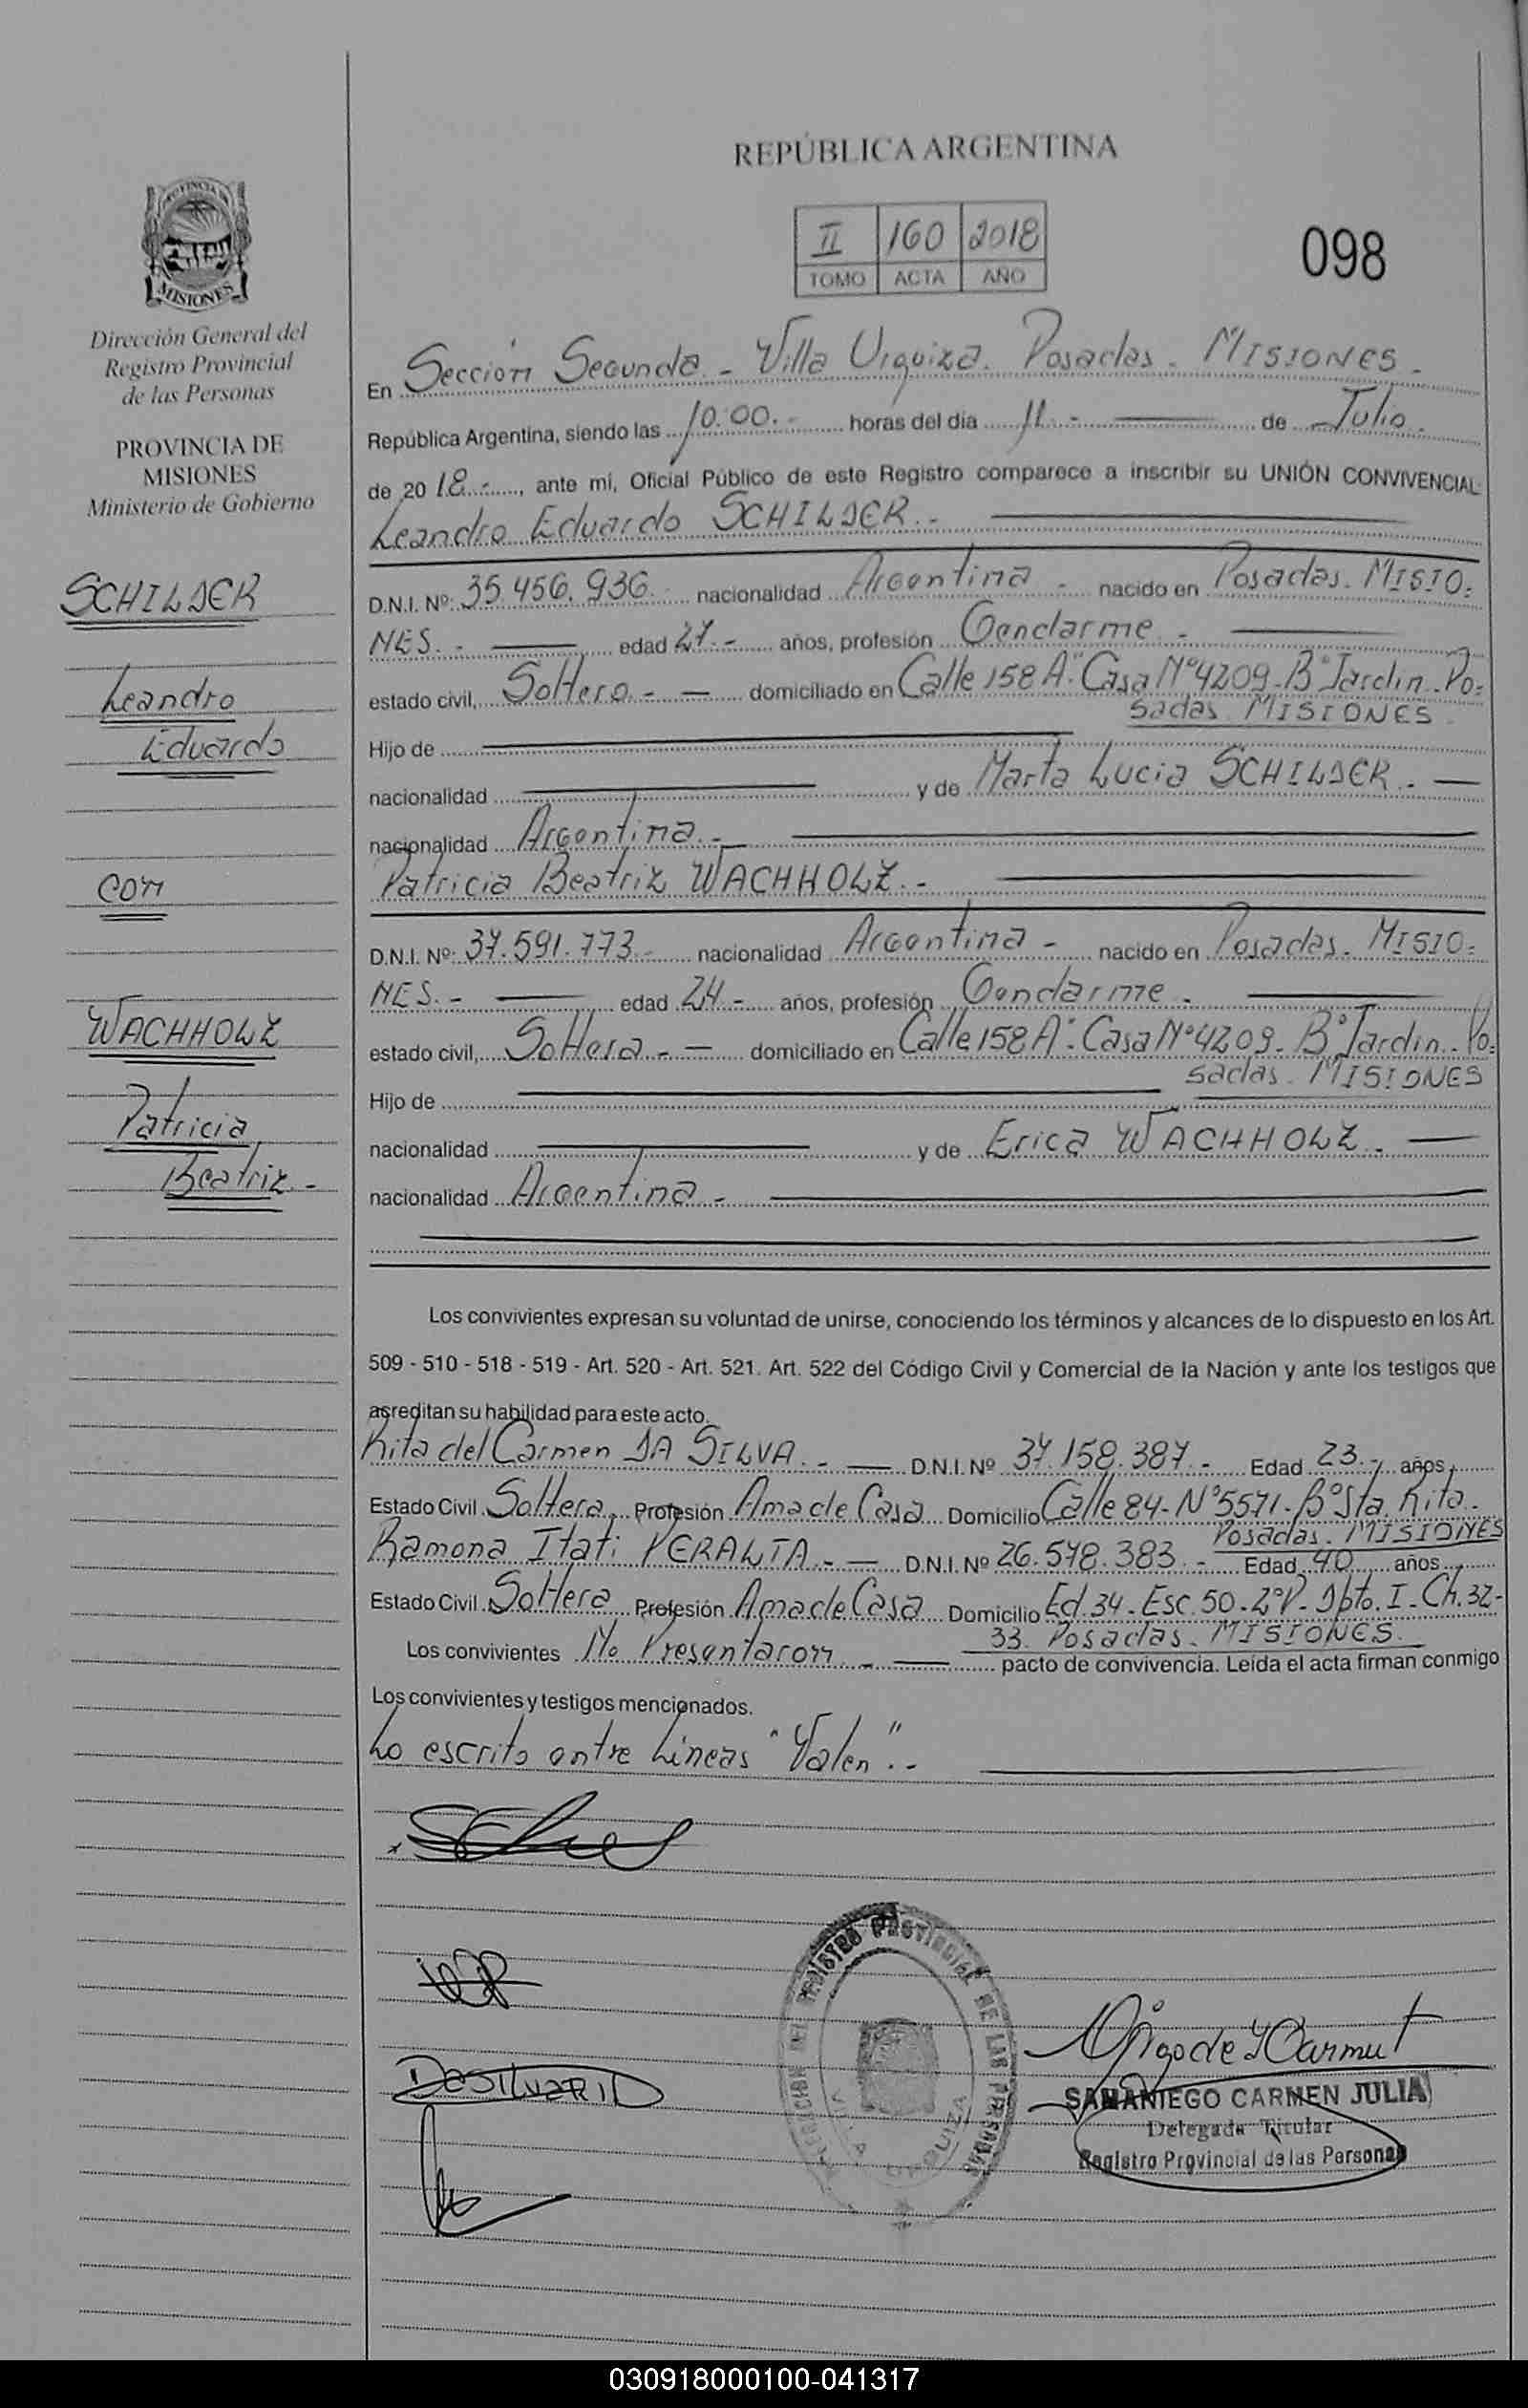 REPÚBLICA ARGENTINA
II 160 2018
TOMO ACTA AÑO
098
PROVINCIA DE
MISIONES
Dirección General del
Registro Provincial
de las Personas
PROVINCIA DE
MISIONES
Ministerio de Gobierno
SCHILDER
Leandro
Eduardo
con
WACHHOLZ
Patricia
Beatriz.-
En Sección Segunda - Villa Urquiza. Posadas. MISIONES.
República Argentina, siendo las 10:00.- horas del día 11.- de Julio.
de 2018.-, ante mí, Oficial Público de este Registro comparece a inscribir su UNIÓN CONVIVENCIAL
Leandro Eduardo SCHILDER.-
D.N.I. Nº: 35.456.936. nacionalidad Argentina - nacido en Posadas. MISIO=
NES.- edad 27.- años, profesión Gendarme -
estado civil, Soltero.- domiciliado en Calle 158 A" Casa Nº 4209 - Bº Jardin - Po=
sadas MISIONES.
Hijo de
nacionalidad y de Marta Lucia SCHILDER.-
nacionalidad Argentina.-
Patricia Beatriz WACHHOLZ.-
D.N.I. Nº: 37.591.773.- nacionalidad Argentina - nacido en Posadas. MISIO=
NES.- edad 24.- años, profesión Gendarme -
estado civil, Soltera.- domiciliado en Calle 158 A" Casa Nº 4209 - Bº Jardin - Po=
sadas. MISIONES
Hijo de
nacionalidad y de Erica WACHHOLZ.-
nacionalidad Argentina -
Los convivientes expresan su voluntad de unirse, conociendo los términos y alcances de lo dispuesto en los Art.
509 - 510 - 518 - 519 - Art. 520 - Art. 521. Art. 522 del Código Civil y Comercial de la Nación y ante los testigos que
acreditan su habilidad para este acto.
Rita del Carmen DA SILVA.- D.N.I. Nº 37.158.387.- Edad 23.- años,
Estado Civil Soltera Profesión Ama de Casa Domicilio Calle 84 - Nº 5571 - Bº Sta. Rita -
Posadas. MISIONES
Ramona Itati PERALTA.- D.N.I. Nº 26.578.383.- Edad 40 años
Estado Civil Soltera Profesión Ama de Casa Domicilio Ed. 34 - Esc. 50 - 2º P - Dpto. I - Ch. 32-
33. Posadas. MISIONES.
Los convivientes No Presentaron - pacto de convivencia. Leída el acta firman conmigo
Los convivientes y testigos mencionados.
Lo escrito entre Lineas "Valen".-
REGISTRO PROVINCIAL DE LAS PERSONAS
VILLA URQUIZA
SAMANIEGO CARMEN JULIA
Delegada Titular
Registro Provincial de las Personas
030918000100-041317